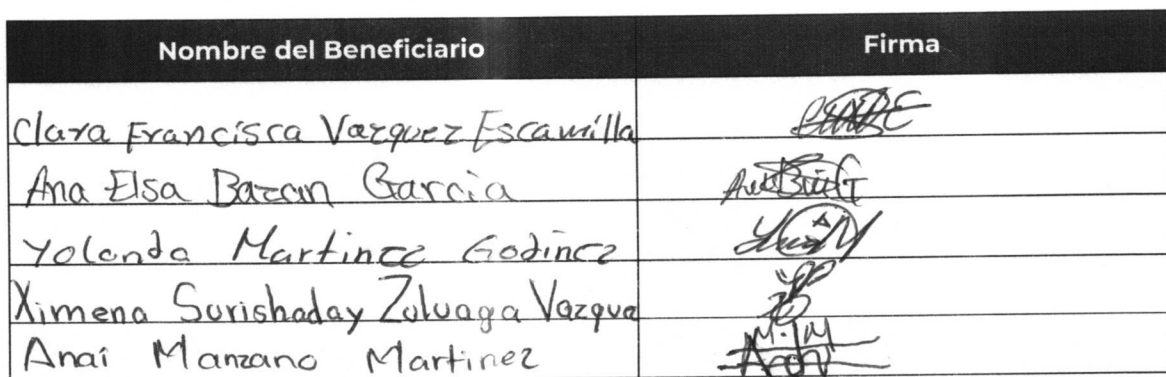 Nombre del Beneficiario Firma
Clara Francisca Vazquez Escamilla
Ana Elsa Bazan Garcia
Yolanda Martinez Godinez
Ximena Surishaday Zuluaga Vazque
Anai Manzano Martinez